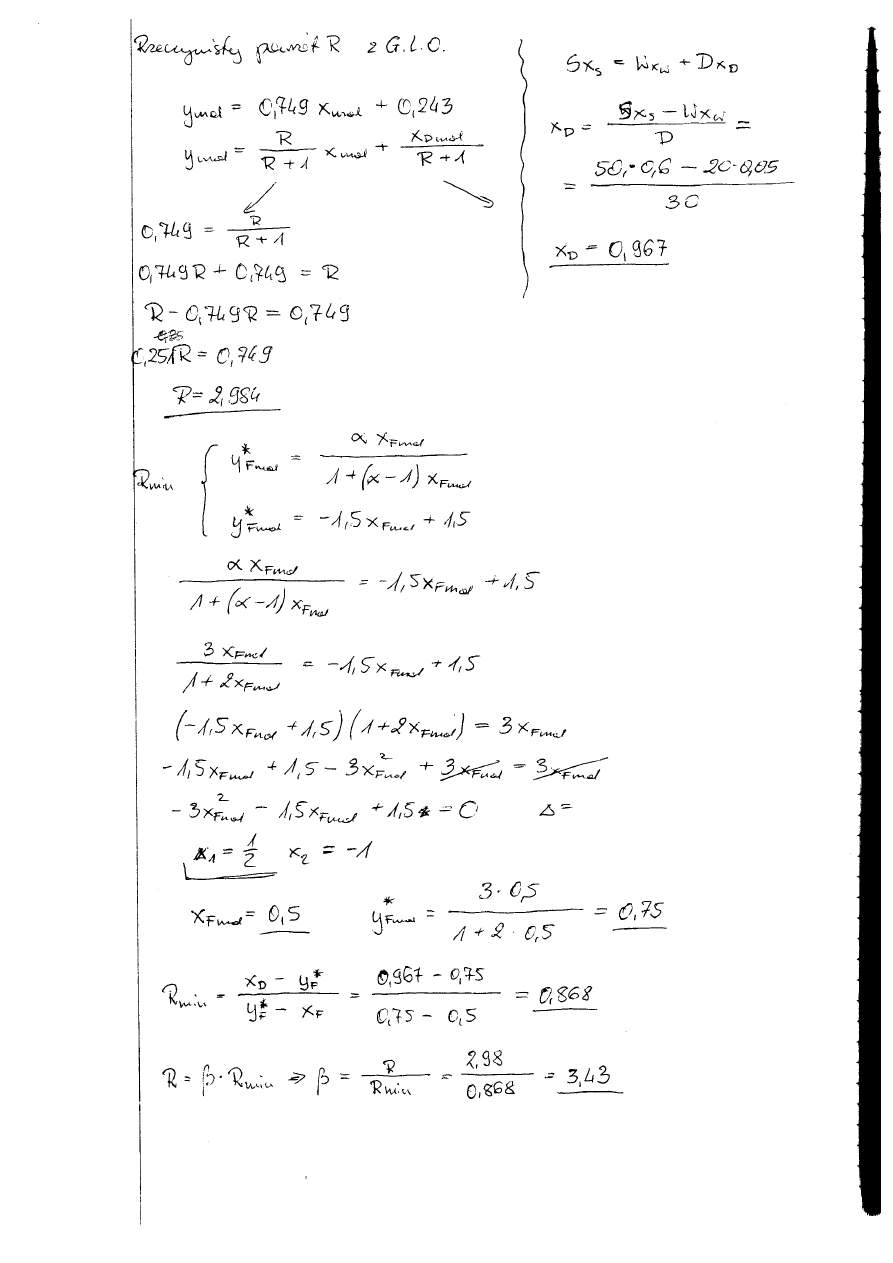 Rzeczywisty powrót R z G.L.O.
y_mol = 0,749 x_mol + 0,243
y_mol = R / (R+1) x_mol + x_Dmol / (R+1)
0,749 = R / (R+1)
0,749R + 0,749 = R
R - 0,749R = 0,749
0,251R = 0,749
R = 2,984
Sx_S = Wx_W + Dx_D
x_D = (Sx_S - Wx_W) / D =
= (50,·0,6 - 20·0,05) / 30
x_D = 0,967
Rmin { y*_Fmol = α x_Fmol / (1+(α-1) x_Fmol)
y*_Fmol = -1,5x_Fmol + 1,5
α x_Fmol / (1+(α-1) x_Fmol) = -1,5x_Fmol + 1,5
3 x_Fmol / (1+2x_Fmol) = -1,5x_Fmol + 1,5
(-1,5x_Fmol + 1,5)(1+2x_Fmol) = 3x_Fmol
-1,5x_Fmol + 1,5 - 3x²_Fmol + 3x_Fmol = 3x_Fmol
-3x²_Fmol - 1,5x_Fmol + 1,5 = 0 Δ =
x₁ = 1/2 x₂ = -1
x_Fmol = 0,5 y*_Fmol = 3·0,5 / (1+2·0,5) = 0,75
Rmin = (x_D - y*_F) / (y*_F - x_F) = (0,967 - 0,75) / (0,75 - 0,5) = 0,868
R = β·Rmin ⇒ β = R / Rmin = 2,98 / 0,868 = 3,43